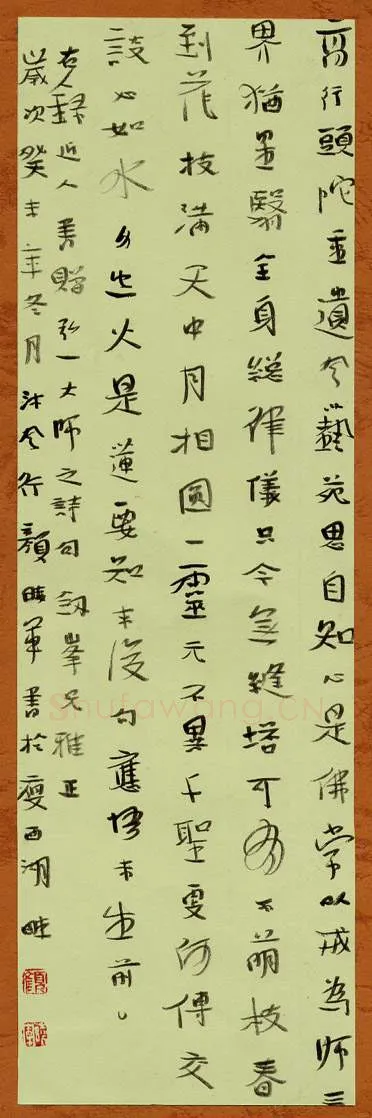 高行頭陀重遺今藝苑思自知心是佛常以戒為師三
界猶星翳全身總律儀只今無縫塔可有不萌枝春
到花枝滿天中月相圓一靈元不異千聖更何傳交
談心如水火是蓮要知末後句應悟未生前
右錄近人書贈弘一大師之詩句劍峯兄雅正
歲次癸未年冬月行顏曉軍書於瘦西湖畔
Shufawang.CN